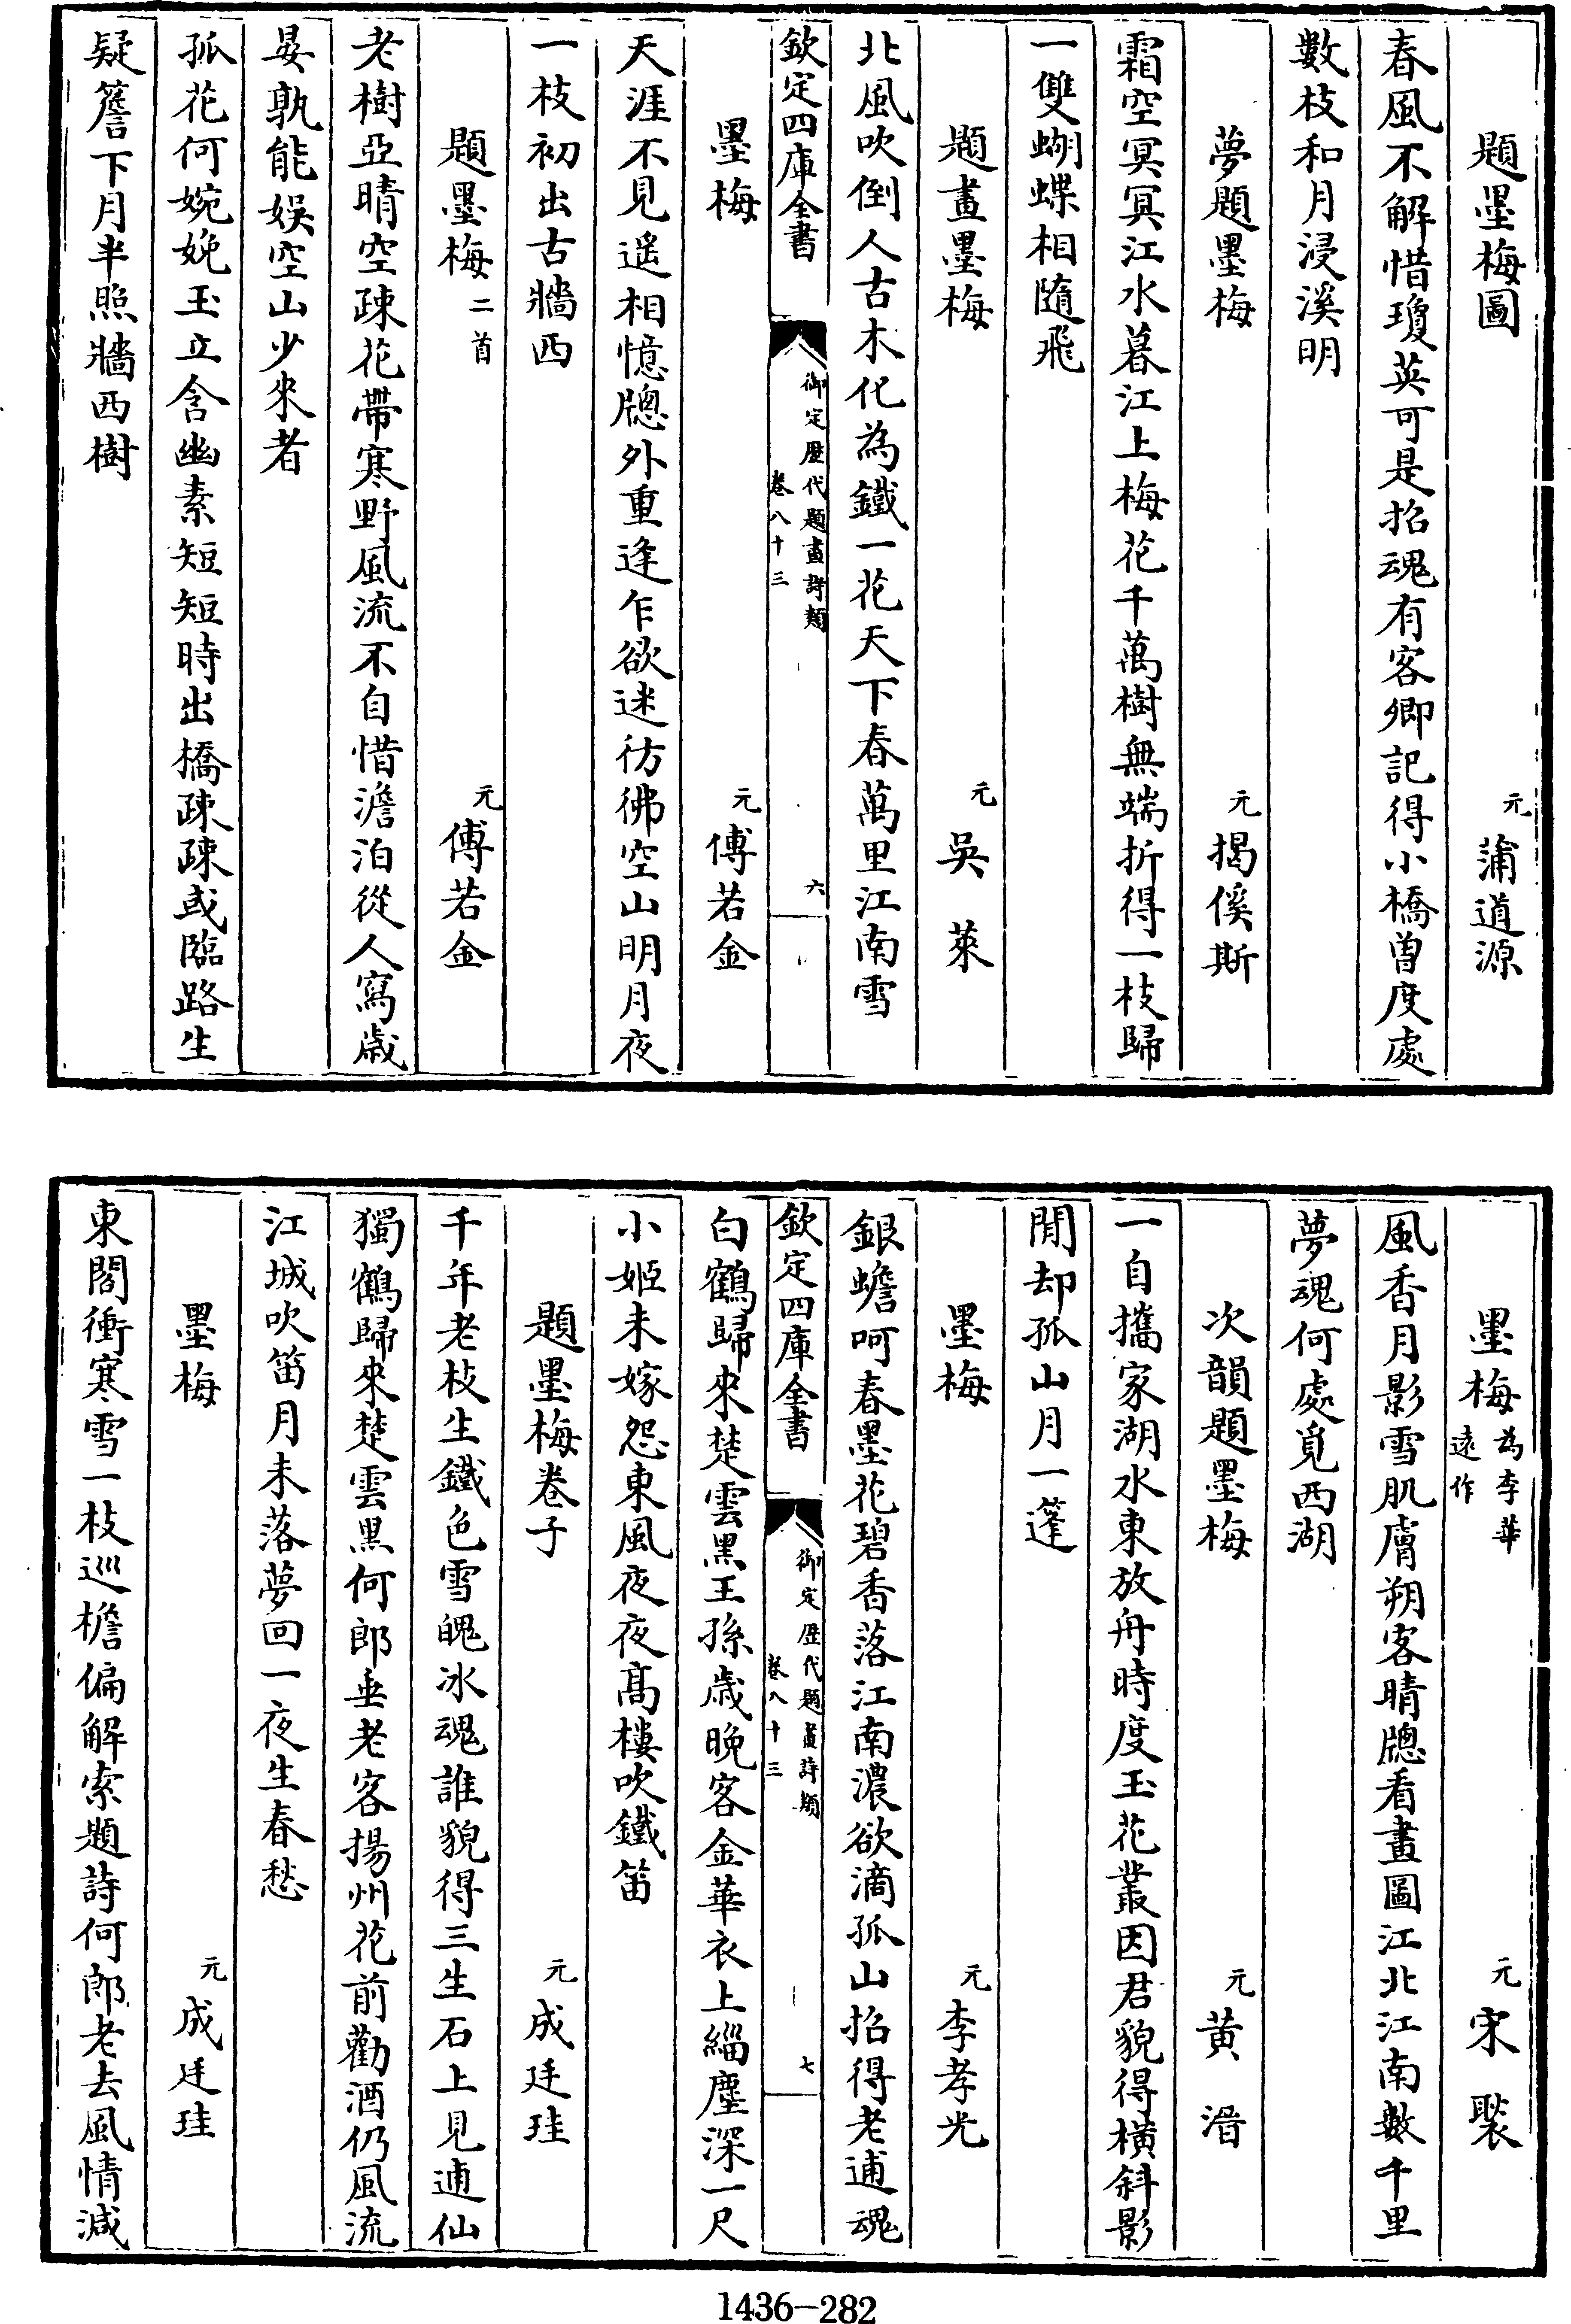 題墨梅圖 元 蒲道源
春風不解惜瓊英可是招魂有客卿記得小橋曾度處
數枝和月浸溪明
夢題墨梅 元 揭傒斯
霜空冥冥江水暮江上梅花千萬樹無端折得一枝歸
一雙蝴蝶相隨飛
題畫墨梅 元 吳萊
北風吹倒人古木化為鐵一花天下春萬里江南雪
欽定四庫全書 御定歷代題畫詩類 卷八十三 六
墨梅 元 傅若金
天涯不見遥相憶牕外重逢乍欲迷彷彿空山明月夜
一枝初出古牆西
題墨梅二首 元 傅若金
老樹亞晴空疎花帶寒野風流不自惜澹泊從人寫歲
晏孰能娱空山少來者
孤花何婉娩玉立含幽素短短時出橋疎疎或臨路生
疑簷下月半照牆西樹
墨梅為李華遠作 元 宋褧
風香月影雪肌膚朔客晴牕看畫圖江北江南數千里
夢魂何處覓西湖
次韻題墨梅 元 黄溍
一自攜家湖水東放舟時度玉花叢因君貌得橫斜影
閒却孤山月一篷
墨梅 元 李孝光
銀蟾呵春墨花碧香落江南濃欲滴孤山招得老逋魂
欽定四庫全書 御定歷代題畫詩類 卷八十三 七
白鶴歸來楚雲黑王孫歲晚客金華衣上緇塵深一尺
小姬未嫁怨東風夜夜髙樓吹鐵笛
題墨梅卷子 元 成廷珪
千年老枝生鐵色雪魄冰魂誰貌得三生石上見逋仙
獨鶴歸來楚雲黒何郎垂老客揚州花前勸酒仍風流
江城吹笛月未落夢回一夜生春愁
墨梅 元 成廷珪
東閣衝寒雪一枝巡檐偏解索題詩何郎老去風情減
1436—282